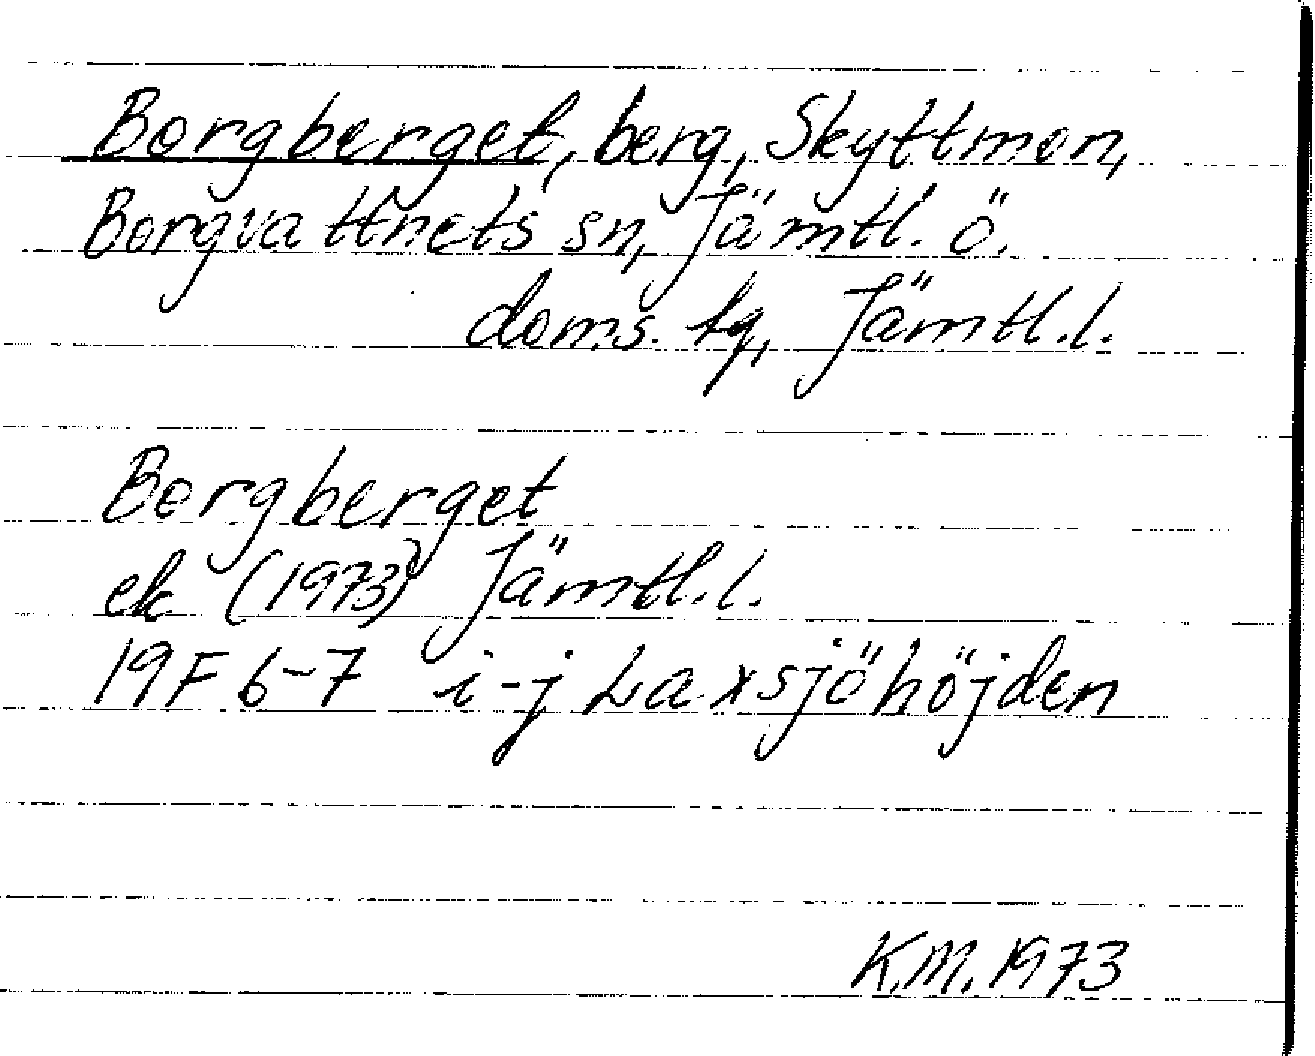 Borgberget, berg, Skyttmon,
Borgvattnets sn, Jämtl. ö.
doms. hg, Jämtl.l.
Borgberget
ek (1973) Jämtl.l.
19F 6-7 i-j Laxsjöhöjden
K.M. 1973